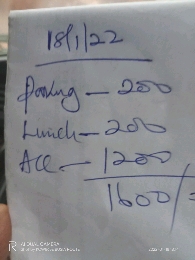 18/1/22
Parking — 200
Lunch — 200
Acc — 1200
1600/=
AI QUAD CAMERA